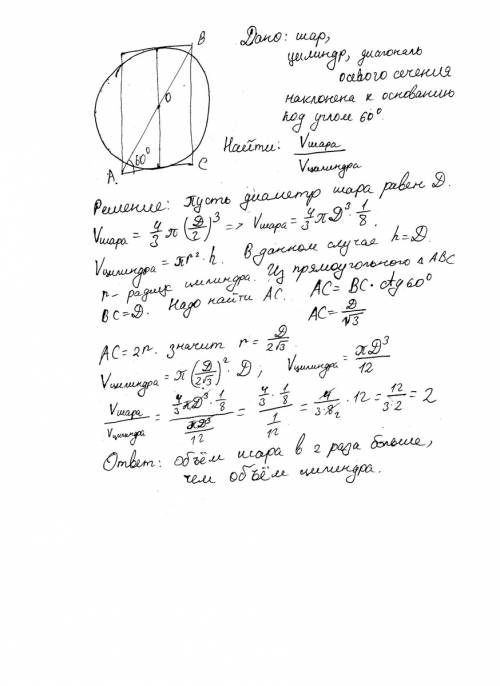 B
O
60°
A
C
Дано: шар,
цилиндр, диагональ
осевого сечения
наклонена к основанию
под углом 60°.
Найти: Vшара / Vцилиндра
Решение: Пусть диаметр шара равен D.
Vшара = 4/3 π (D/2)³ => Vшара = 4/3 π D³ · 1/8.
Vцилиндра = πr² · h. В данном случае h = D.
r - радиус цилиндра. Из прямоугольного Δ ABC
BC = D. Надо найти AC. AC = BC · ctg 60°
AC = D/√3
AC = 2r. значит r = D/2√3
Vцилиндра = π (D/2√3)² · D, Vцилиндра = πD³/12
Vшара / Vцилиндра = (4/3 πD³ · 1/8) / (πD³/12) = (4/3 · 1/8) / (1/12) = 4/(3·8₂) · 12 = 12/(3·2) = 2
Ответ: объём шара в 2 раза больше,
чем объём цилиндра.